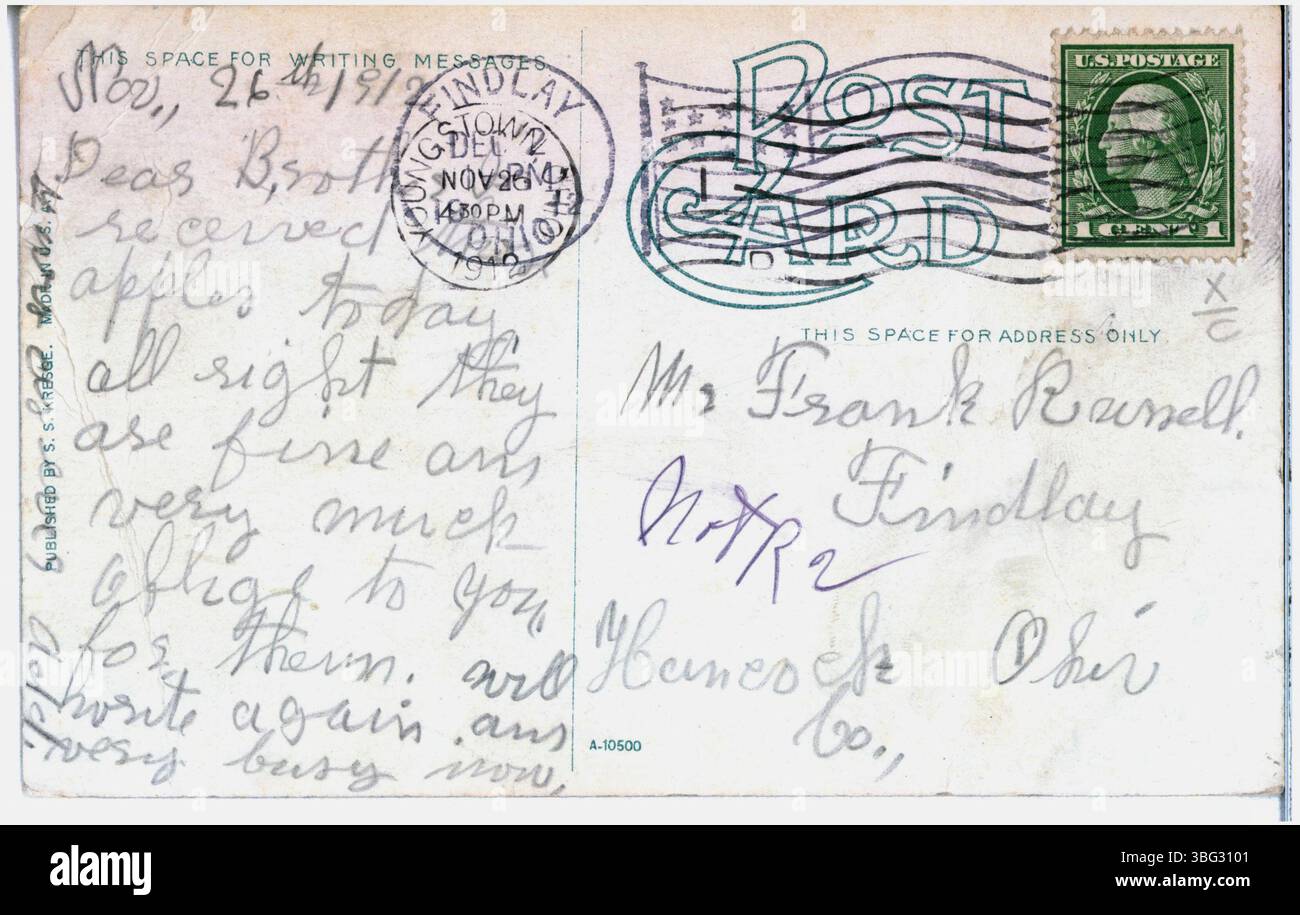 THIS SPACE FOR WRITING MESSAGES
Nov., 26th 1912
Dear Broth
received
apples today
all right they
are fine ans
very much
oblige to you,
for them. will
write again. ans
very busy now,
PUBLISHED BY S. S. KRESGE. MADE IN U. S. A.
FINDLAY
DEC 2
PM
YOUNGSTOWN
NOV 26
4 30 PM
OHIO
1912
POST
CARD
U.S. POSTAGE
1 CENT 1
X
C
THIS SPACE FOR ADDRESS ONLY
Mr Frank Russell.
Findlay
Not R2
Hancock Ohio
Co.,
A-10500
alamy
Image ID: 3BG3101
www.alamy.com